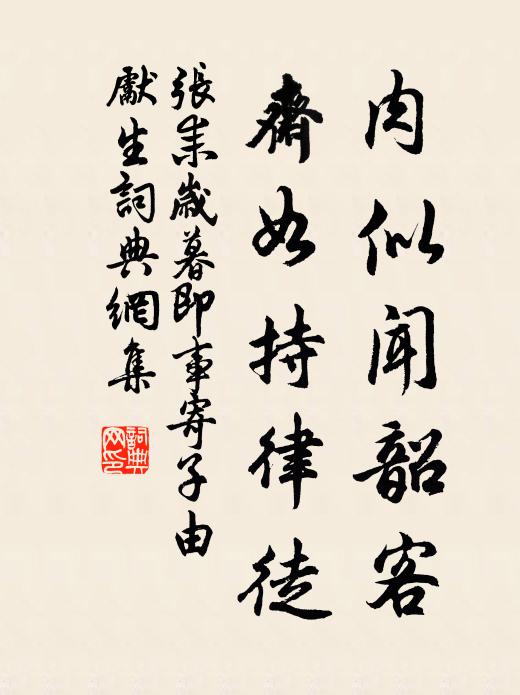 肉似聞韶客
齋如持律徒
張耒歲暮即事寄子由
先生詞典網集
詞典網印